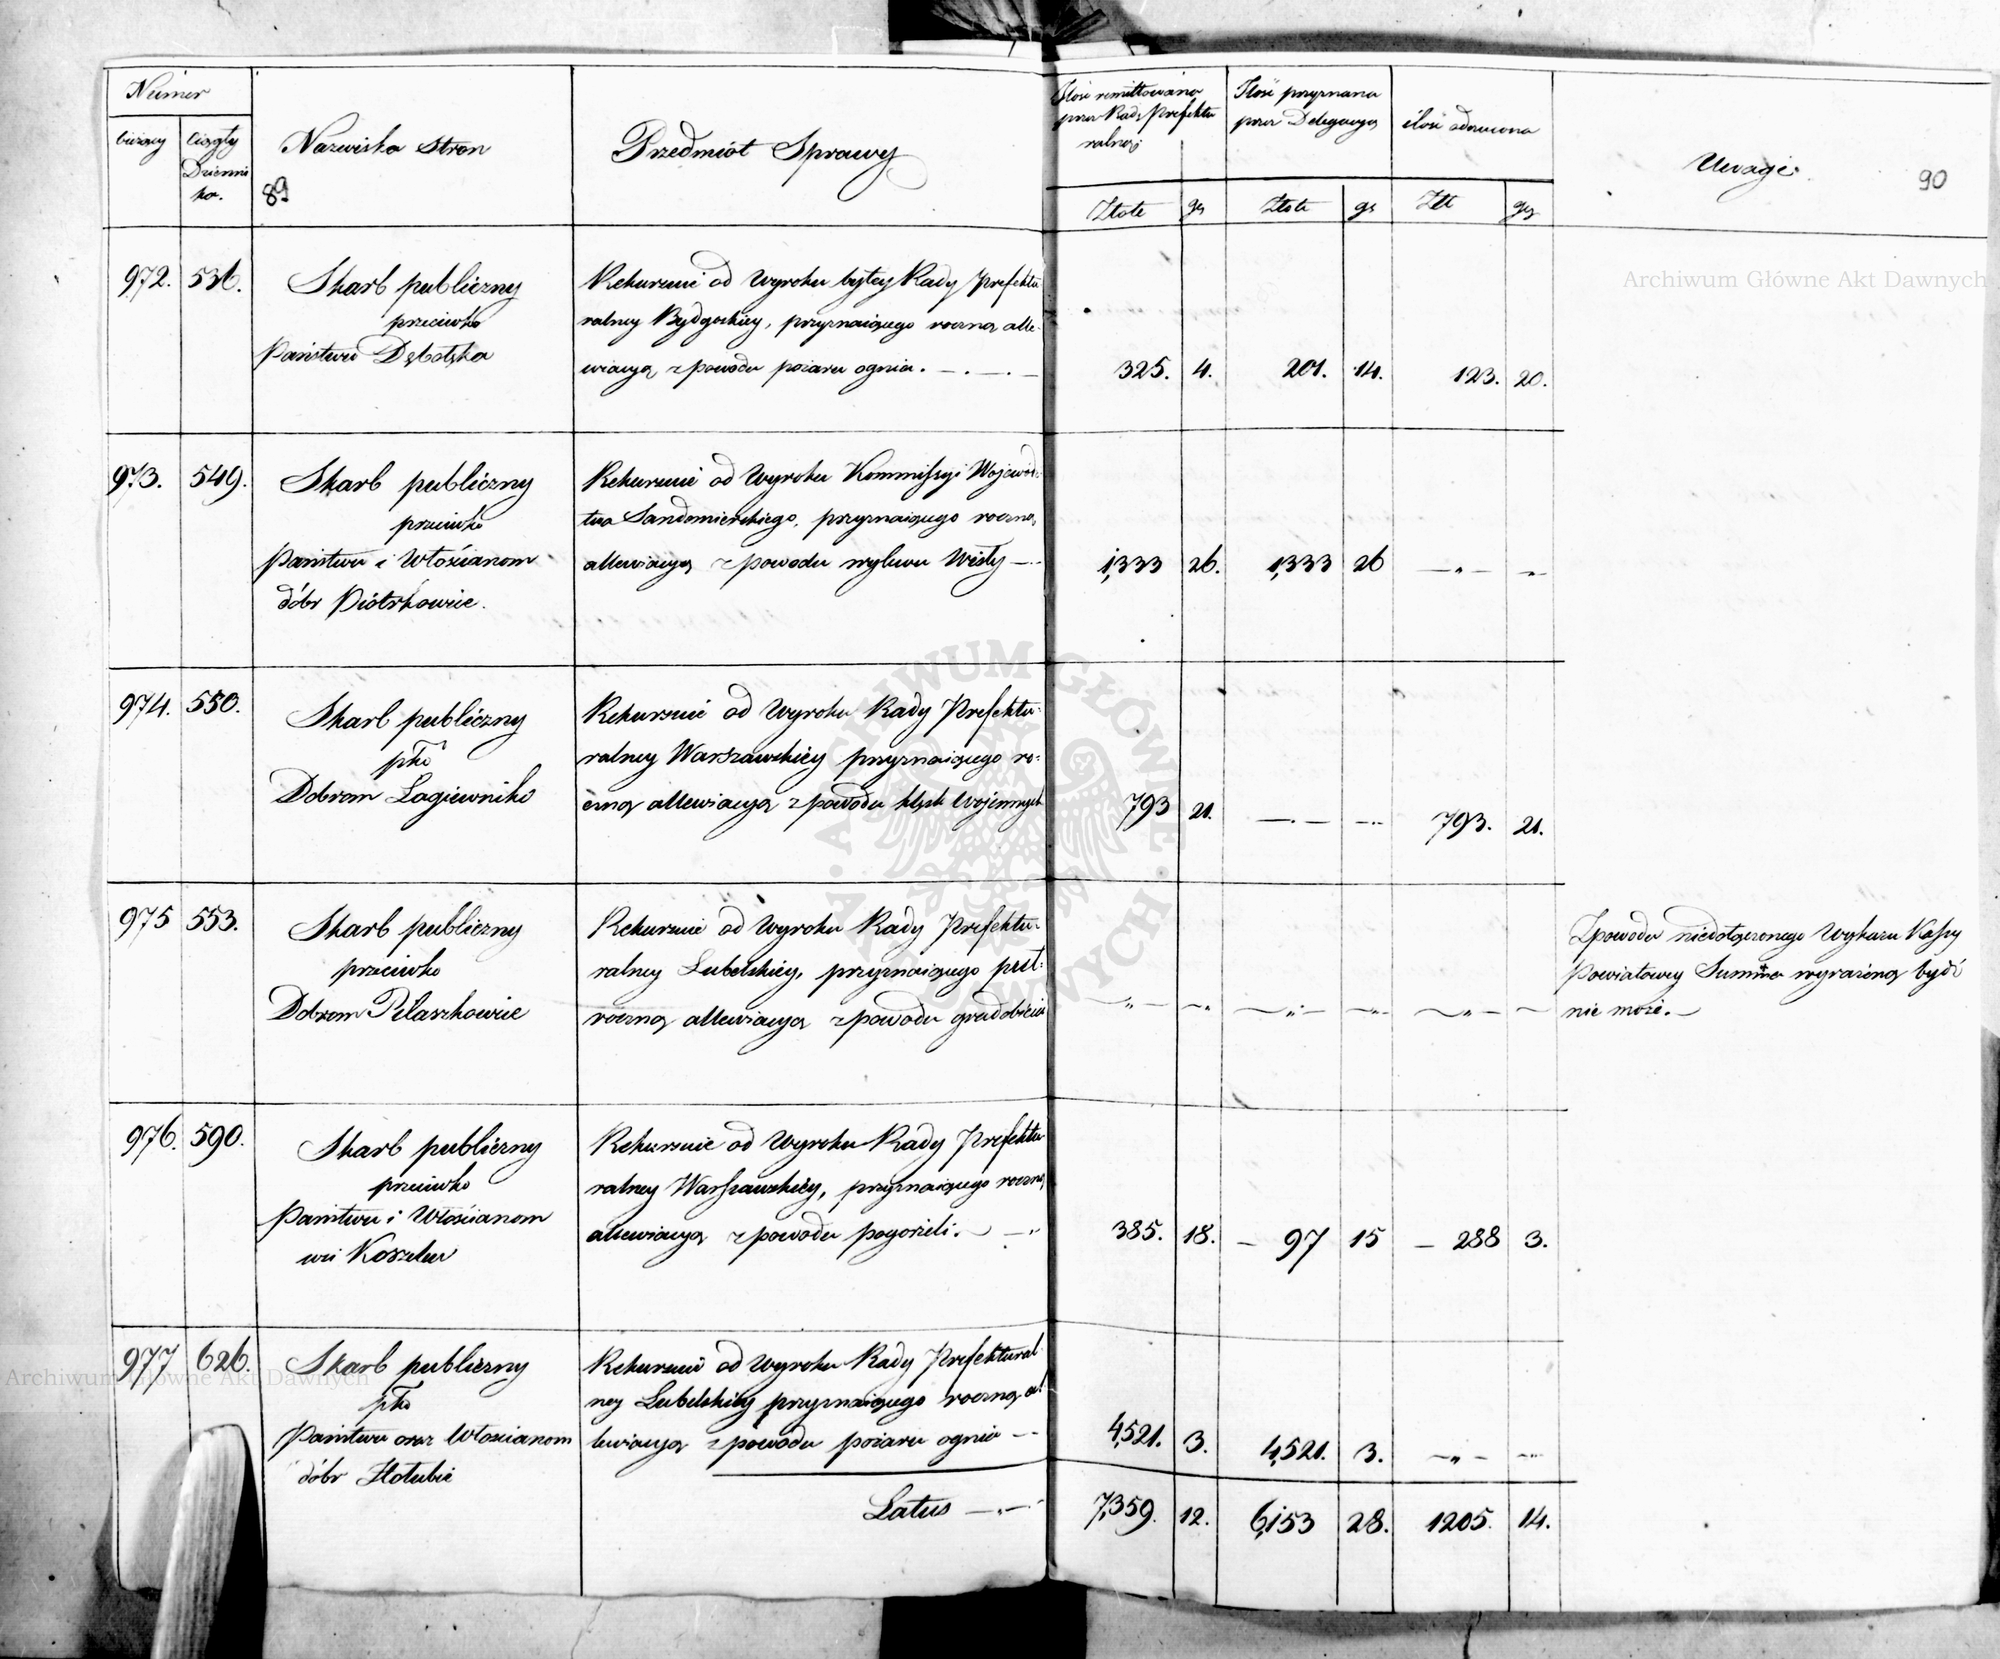 Numer
bieżący
Ciągły
Dzienni
ka.
Nazwiska Stron
89
Przedmiot Sprawy
Ilość remittowana
przez Radę Prefektu
ralną
Ilość przyznana
przez Delegacyą
ilość odrzucona
Uwagi
90
Złote gr Złote gr Złt gr
972. 536. Skarb publiczny
przeciwko
Państwu Dębołęka
Rekursuie od Wyroku byłey Rady Prefektu
ralney Bydgoskiey, przyznaiącego roczną alle-
wiacyą z powodu pożaru ognia. — . — . —
325. 4. 201. 14. 123. 20.
973. 549. Skarb publiczny
przeciwko
Państwu i Włościanom
dóbr Piotrkowice.
Rekursuie od Wyroku Kommissyi Wojewódz:
twa Sandomierskiego, przyznaiącego roczną
allewiacyą z powodu wylewu Wisły —
1,333 26. 1,333 26 — „ — „
974. 550. Skarb publiczny
pko
Dobrom Łagiewniki
Rekursuie od Wyroku Rady Prefektu:
ralney Warszawskiey przyznaiącego ro:
czną allewiacyą z powodu klęsk wojennych
793 21. — . — — . — 793. 21.
975 553. Skarb publiczny
przeciwko
Dobrom Pilaszkowice
Rekursuie od Wyroku Rady Prefektu:
ralney Lubelskiey, przyznaiącego puł:
roczną allewiacyą z powodu gradobicia
— „ — — „ — „ — — „ — — „ — —
Zpowodu niedołączonego Wykazu Kassy
Powiatowey Summa wyrażoną bydź
nie może. —
976. 590. Skarb publiczny
przeciwko
Państwu i Włościanom
wsi Koszelew
Rekursuie od Wyroku Rady Prefektu
ralney Warszawskiey, przyznaiącego roczną
allewiacyą z powodu pogorzeli. —
385. 18. — 97 15 — 288 3.
977 626. Skarb publiczny
pko
Państwu oraz Włościanom
dóbr Hołubie
Rekursuie od Wyroku Rady Prefektural
ney Lubelskiey przyznaiącego roczną al
lewiacyą z powodu pożaru ognia —
4,521. 3. 4,521. 3. — „ — — „ —
Latus — . —
7,359. 12. 6,153 28. 1205. 14.
Archiwum Główne Akt Dawnych
Archiwum Główne Akt Dawnych
ARCHIWUM GŁÓWNE AKT DAWNYCH